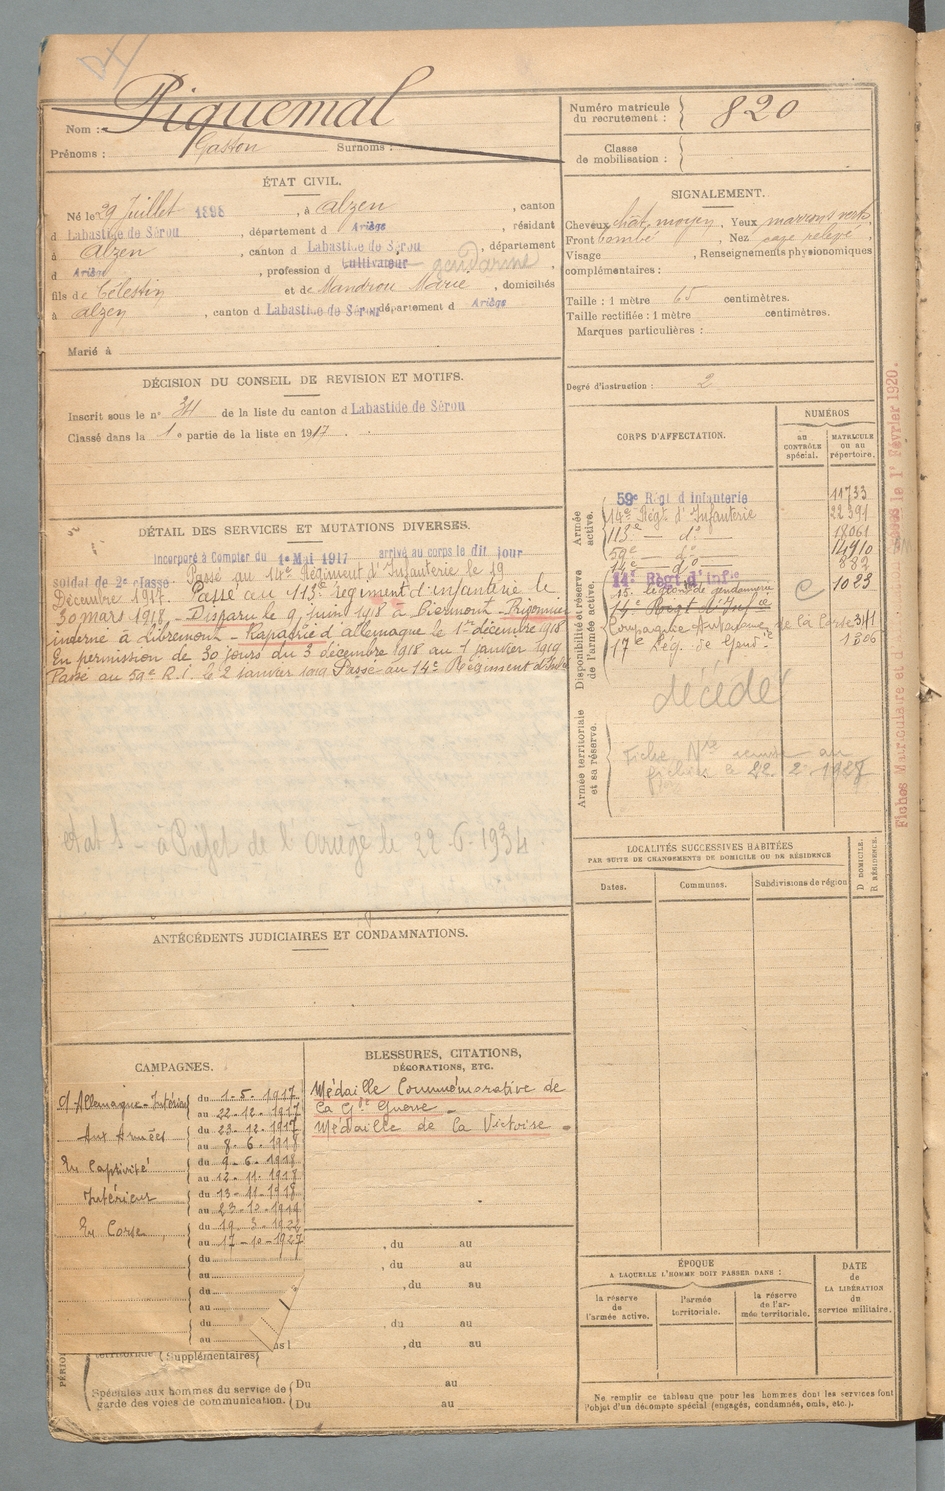 Piquemal
Nom :
Prénoms : Gaston Surnoms :
Numéro matricule du recrutement : 820
Classe de mobilisation :
ÉTAT CIVIL.
Né le 29 Juillet 1898, à Alzen, canton
d Labastide de Sérou, département d Ariège, résidant
à Alzen, canton d Labastide de Sérou, département
d Ariège, profession d cultivateur gendarme
fils de Célestin et de Mandrou Marie, domiciliés
à Alzen, canton d Labastide de Sérou, département d Ariège
Marié à
SIGNALEMENT.
Cheveux chât. moyen, Yeux marrons verts,
Front bombé, Nez
Visage, Renseignements physionomiques
complémentaires :
Taille : 1 mètre 65 centimètres.
Taille rectifiée : 1 mètre centimètres.
Marques particulières :
Degré d'instruction : 2
DÉCISION DU CONSEIL DE REVISION ET MOTIFS.
Inscrit sous le n° 34 de la liste du canton d Labastide de Sérou
Classé dans la 1e partie de la liste en 1917.
DÉTAIL DES SERVICES ET MUTATIONS DIVERSES.
Incorporé à Compter du 1e Mai 1917 arrivé au corps le dit jour
soldat de 2e classe Passé au 14e Régiment d'Infanterie le 19
Décembre 1917. Passé au 113e régiment d'infanterie le
30 mars 1918. Disparu le 9 juin 1918 à Piermont - Prisonnier
interné à Libremont - Rapatrié d'allemagne le 1er décembre 1918
En permission de 30 jours du 3 décembre 1918 au 7 janvier 1919
Passé au 59e R.I. le 2 Janvier 1919 Passé au 14e Régiment d'Infie
à Préfet de l'Ariège le 22-6-1934
CORPS D'AFFECTATION.
NUMÉROS
au CONTRÔLE spécial.
MATRICULE ou au répertoire.
Armée active.
59e Régt d'infanterie 11733
14e Régt d'Infanterie 22391
113e — do — 18061
59e — do — 14910
14e — do — 882
Disponibilité et réserve de l'armée active.
14e Régt d'Infie 1023
15e Légion de gendarmerie
14e Régt d'Infie
Compagnie Autonome de la Corse 311
17e Lég. de Gend.ie 1306
décédé
Armée territoriale et sa réserve.
Fiche Nle remise au
fichier le 22. 2. 1927
Fiches Matriculaire et de le 1er Février 1920.
LOCALITÉS SUCCESSIVES HABITÉES
PAR SUITE DE CHANGEMENTS DE DOMICILE OU DE RÉSIDENCE
Dates. Communes. Subdivisions de région D DOMICILE. R RÉSIDENCE.
ANTÉCÉDENTS JUDICIAIRES ET CONDAMNATIONS.
CAMPAGNES.
c/ Allemagne - Intérieur du 1.5.1917
au 22.12.1917
Aux Armées du 23.12.1917
au 8.6.1918
En Captivité du 9.6.1918
au 12.11.1918
Intérieur du 13.11.1918
au 23.10.1919
En Corse du 19-3-1922
au 17-10-1927
du
au
du
au
du
au
BLESSURES, CITATIONS,
DÉCORATIONS, ETC.
Médaille Commémorative de
la Gde Guerre -
Médaille de la Victoire -
, du au
, du au
, du au
, du au
, du au
territoriale (Supplémentaires)
Spéciales aux hommes du service de garde des voies de communication. Du au
Du au
ÉPOQUE
A LAQUELLE L'HOMME DOIT PASSER DANS :
la réserve de l'armée active.
l'armée territoriale.
la réserve de l'armée territoriale.
DATE de LA LIBÉRATION du service militaire.
Ne remplir ce tableau que pour les hommes dont les services font
l'objet d'un décompte spécial (engagés, condamnés, omis, etc.).